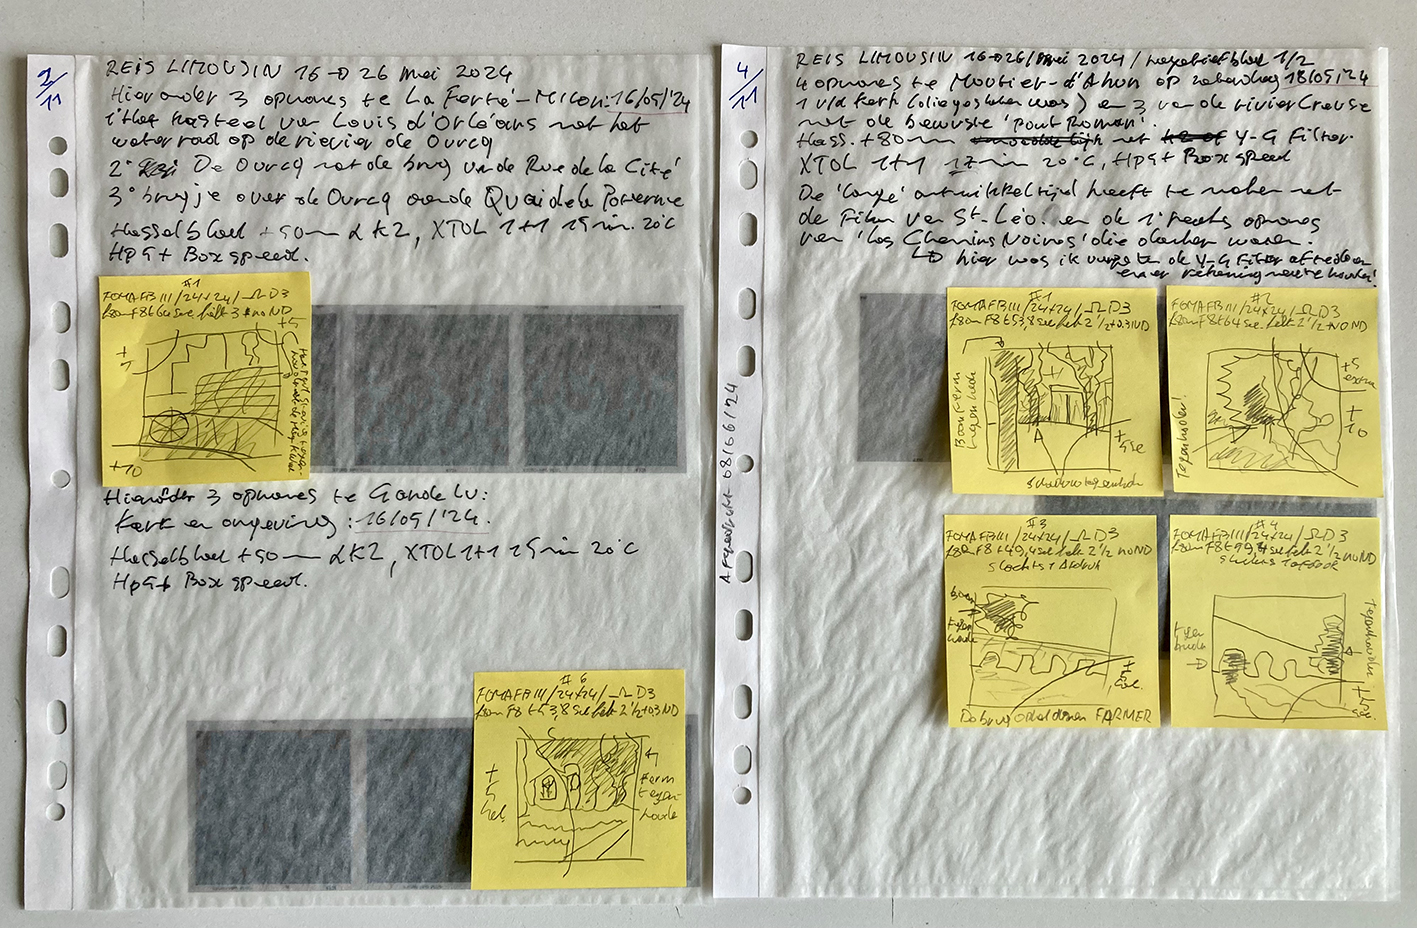 2/11
REIS LIMOUSIN 16→26 mei 2024
Hieronder 3 opnames te La Ferté-Milon: 16/05/'24
1° het kasteel van Louis d'Orléans met het
waterrad op de rivier de Ourcq
2° De Ourcq met de brug van de Rue de la Cité
3° brugje over de Ourcq aan de Quai de la Poterne
Hasselblad + 50mm LK2, XTOL 1+1 15 min. 20°C
Hp5+ Box speed.
#1
FOMA FB III/24x24/ΩD3
F8 t 64 sec 3 no ND
+5
+7
+10
Hieronder 3 opnames te Gandelu:
Kerk en omgeving: 16/05/'24.
Hasselblad + 50mm LK2, XTOL 1+1 15 min 20°C
Hp5+ Box speed.
#6
FOMA FB III/24x24/ΩD3
F8 t 53,8 sec 2 1/2 +0.3ND
+5
sec
Ferm
tegen-
houde
4/11
Afgedrukt 08/06/'24
REIS LIMOUSIN 16→26/mei 2024/negatiefblad 1/2
4 opnames te Moutier-d'Ahun op zaterdag 18/05/'24
1 v/d kerk (die gesloten was) en 3 van de rivier Creuse
met de bewuste 'Pont Roman'.
Hass. +80mm met Y-G Filter.
XTOL 1+1 17 min 20°C, Hp5+ Box speed
De 'lange' ontwikkeltijd heeft te maken met
de film van St-Léo. en de 1° reeks opnames
van 'Les Chemins Noirs' die donker waren.
↳ hier was ik vergeten de Y-G Filter af te doen
en er rekening mee te houden!
#1
FOMA FB III/24x24/ΩD3
F8 t 53,8 sec 2 1/2 +0.3ND
Boom Ferm
tegenhoude
+5 sec
#2
FOMA FB III/24x24/ΩD3
F8 t 64 sec. 2 1/2 + NO ND
+5
extra
+10
Tegenhouden!
#3
FOMA FB III/24x24/ΩD3
F8 t 49,4 sec 2 1/2 no ND
slechts 1 afdruk
Boom
tegen
houde
+5
sec.
De brug ophelderen FARMER
#4
FOMA FB III/24x24/ΩD3
F8 t 99,4 sec 2 1/2 no ND
slechts 1 afdruk
tegen
houden
Tegenhouden
sec.